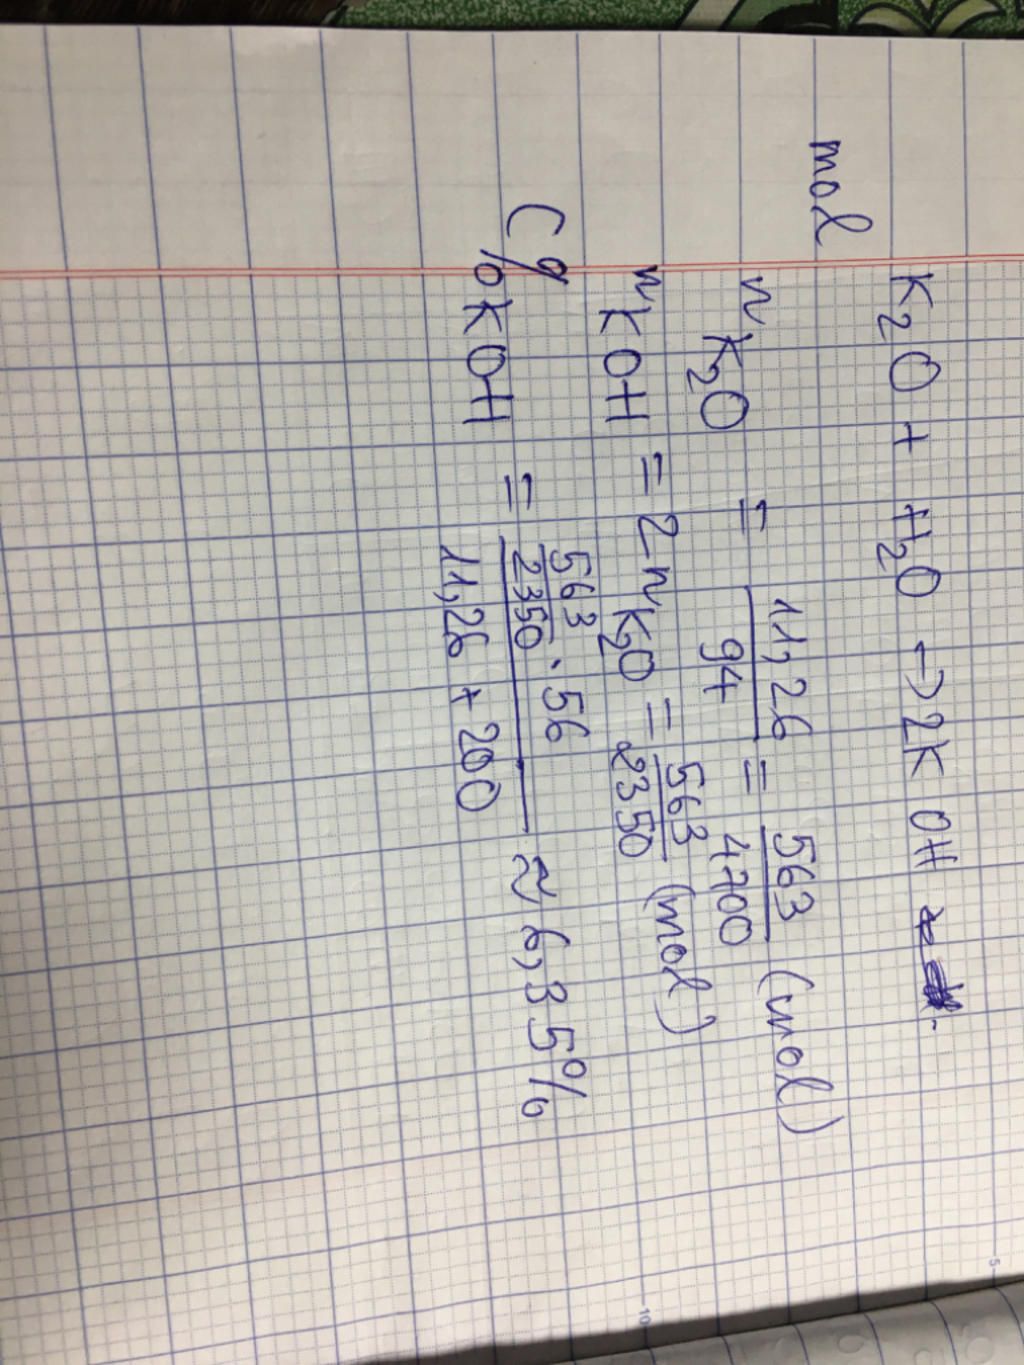 K2O + H2O → 2KOH
mol
nK2O = 11,26/94 = 563/4700 (mol)
nKOH = 2nK2O = 563/2350 (mol)
C%KOH = (563/2350 . 56)/(11,26 + 200) ≈ 6,35%
5
10